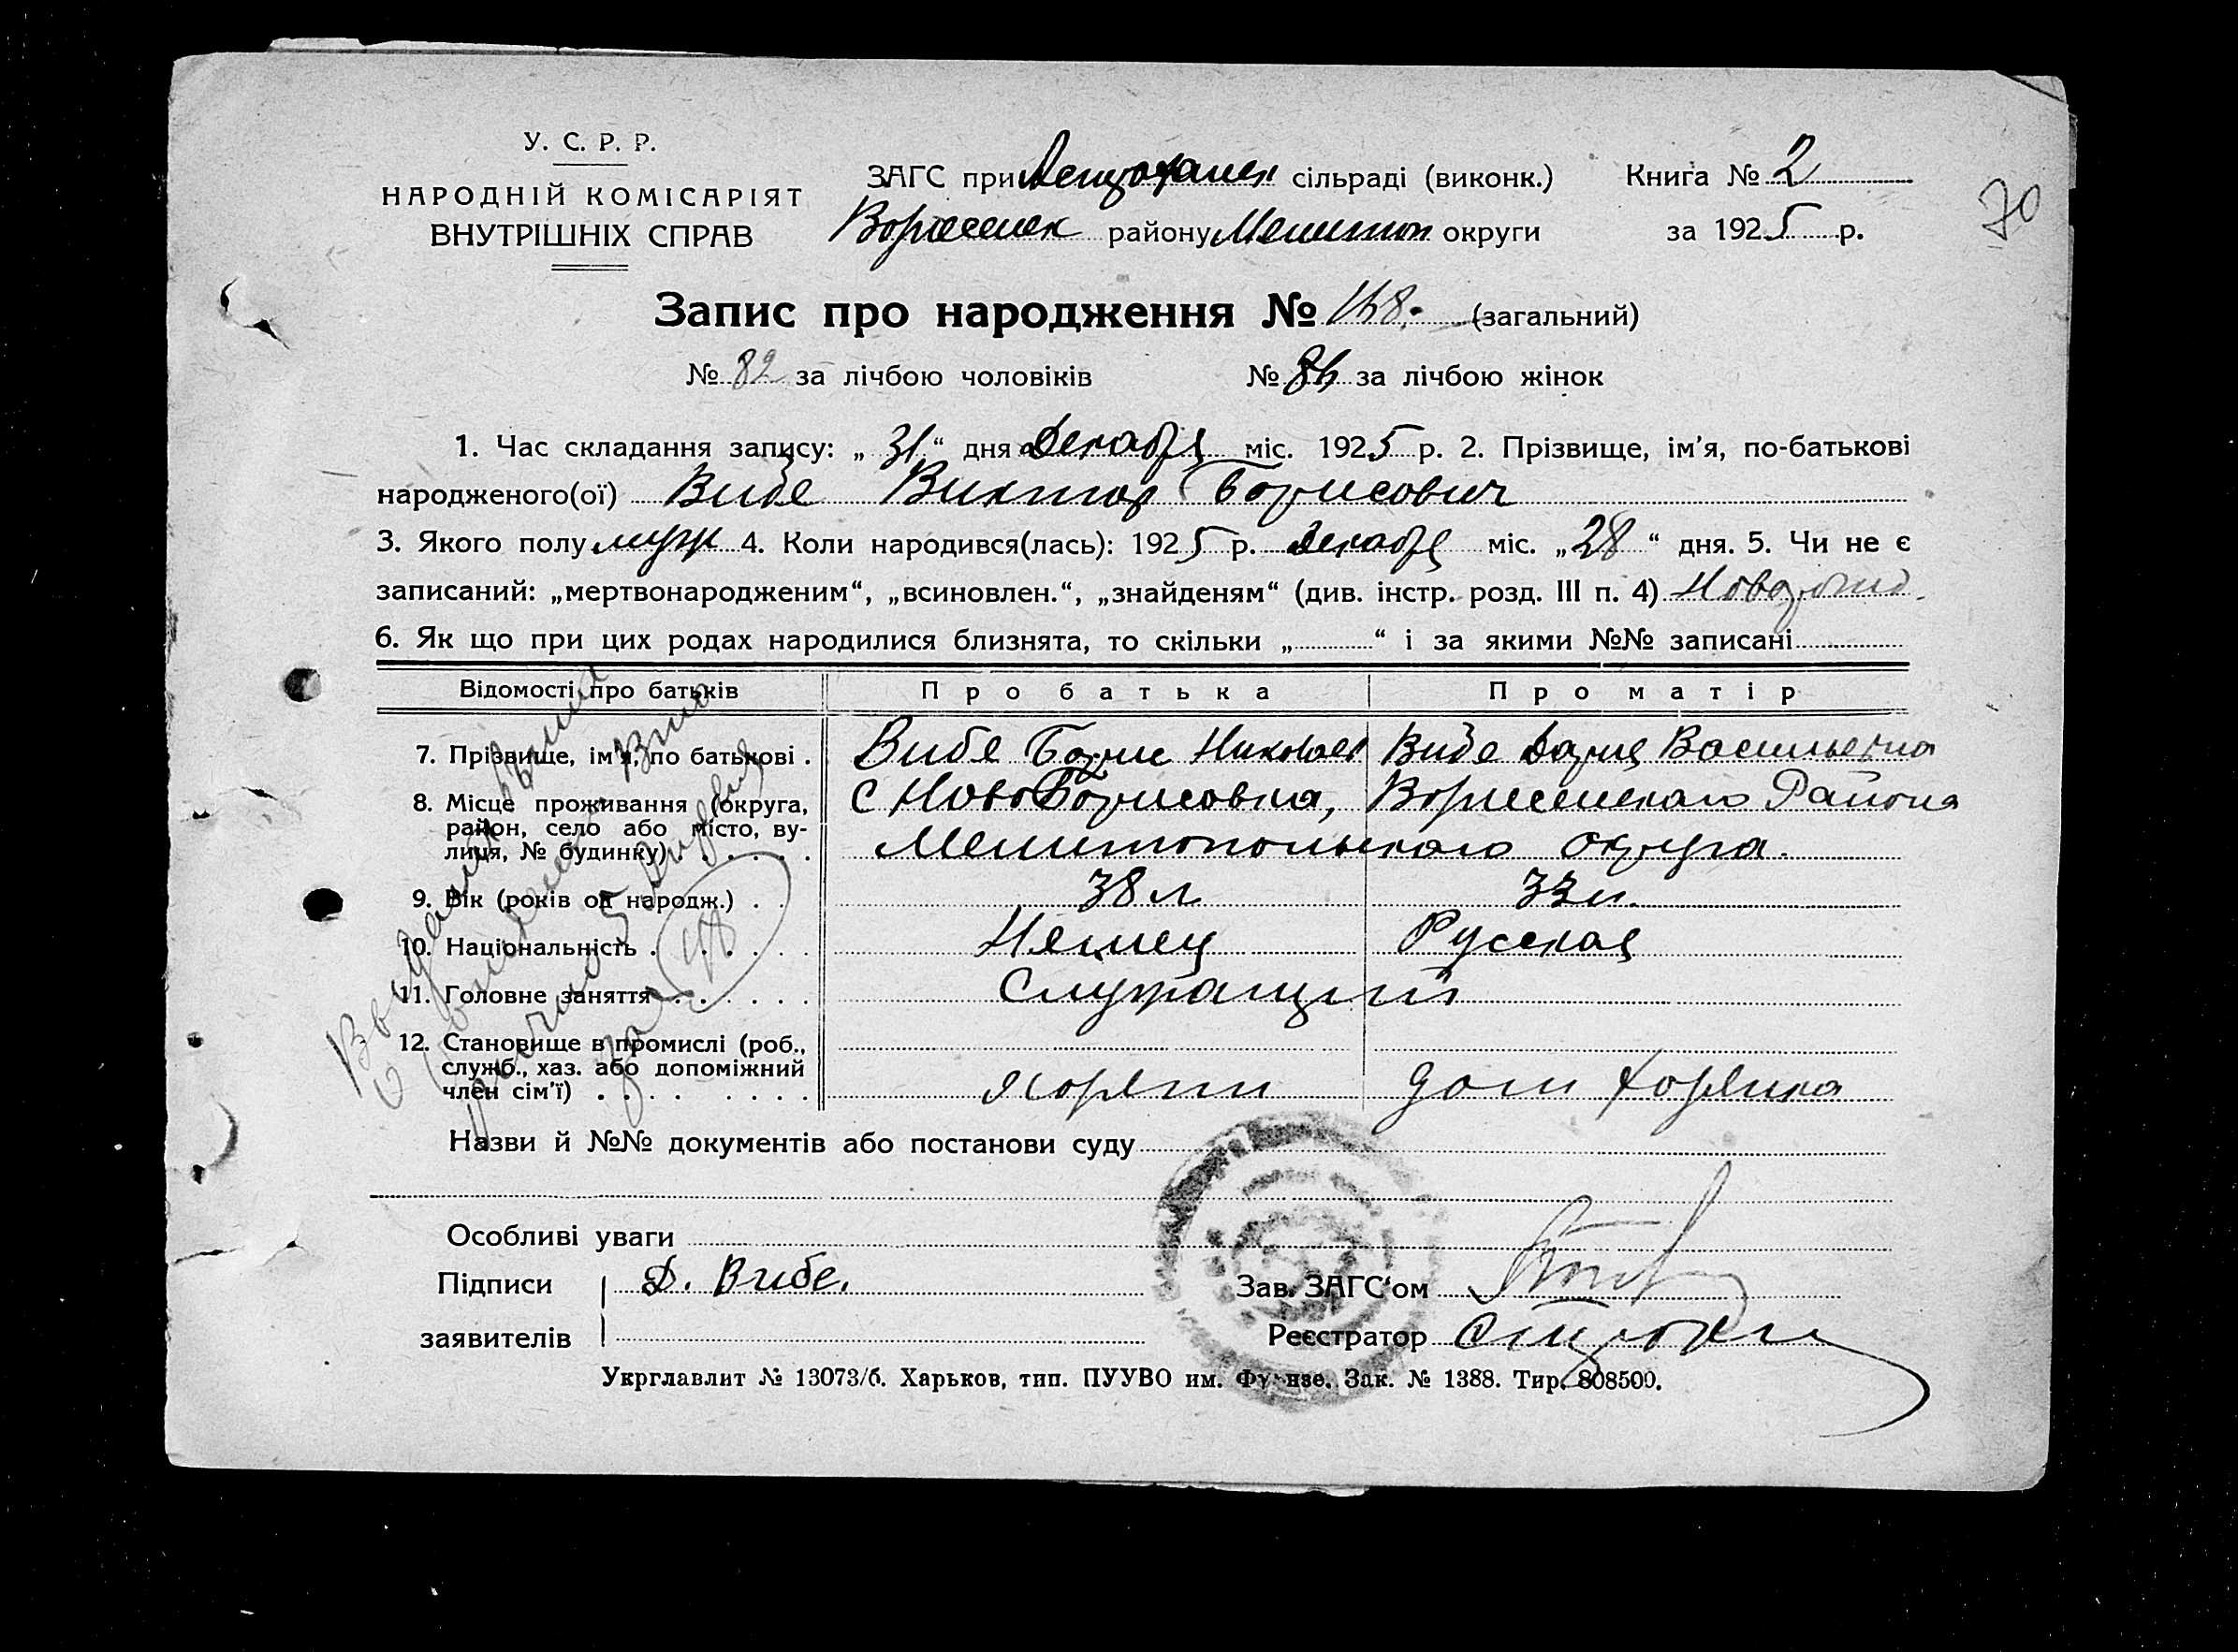 У. С. Р. Р.
НАРОДНІЙ КОМІСАРІЯТ
ВНУТРІШНІХ СПРАВ
ЗАГС при сільраді (виконк.)
району Мелитоп округи
Книга № 2
за 1925 р.
70
Запис про народження № (загальний)
№ 82 за лічбою чоловіків № за лічбою жінок
1. Час складання запису: „ 31 “ дня Декабря міс. 1925 р. 2. Прізвище, ім'я, по-батькові
народженого(ої) Вибе Виктор Борисович
3. Якого полу муж 4. Коли народився(лась): 1925 р. Декабря міс. „28“ дня. 5. Чи не є
записаний: „мертвонародженим“, „всиновлен.“, „знайденям“ (див. інстр. розд. III п. 4)
6. Як що при цих родах народилися близнята, то скільки „ “ і за якими №№ записані
Відомості про батьків Про батька Про матір
7. Прізвище, ім'я, по батькові . Вибе Борис Николаев Вибе Дария Васильевна
8. Місце проживання (округа, район, село або місто, вулиця, № будинку) . . . . . С НовоБорисовка, Района
Мелитопольского округа.
9. Вік (років од народж.) . . 38 л 33 л.
10. Національність . . . . . . Немец Русская
11. Головне заняття . . . . . . Служащий
12. Становище в промислі (роб., служб., хаз. або допоміжний член сім'ї) . . . . . . . . дом хозяйка
Назви й №№ документів або постанови суду
Особливі уваги
Підписи Д. Вибе.
заявителів
Зав. ЗАГС'ом
Реєстратор
Укрглавлит № 13073/б. Харьков, тип. ПУУВО им. Фрунзе. Зак. № 1388. Тир. 808500.